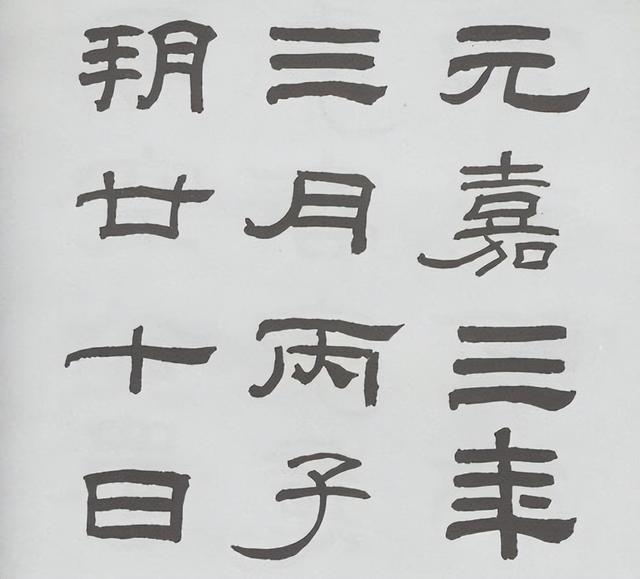 元嘉三年
三月丙子
朔廿七日